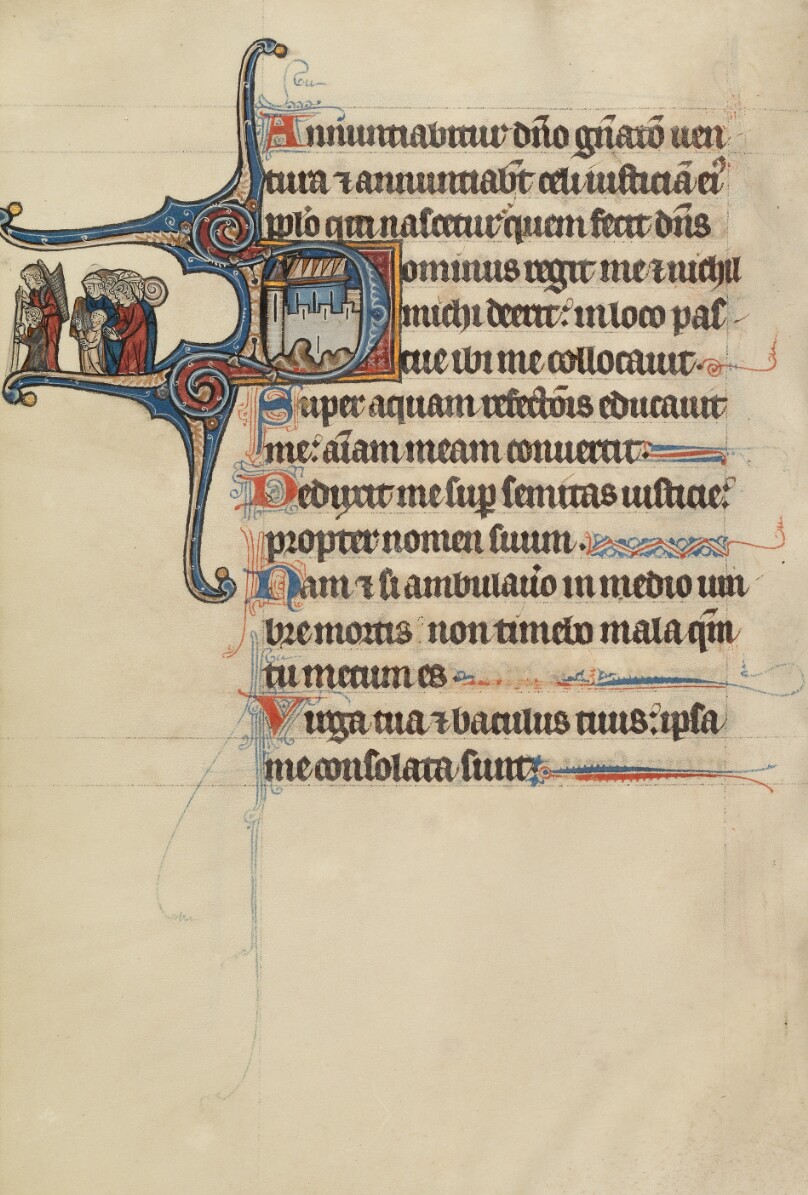 Annuntiabitur dño gñatõ uen
tura ⁊ annuntiabt̃ celi iusticiã ei⁹
pplo qui nascetur quem fecit dñs
Dominus regit me ⁊ nichil
michi deerit: in loco pas
cue ibi me collocauit.
Super aquam refectõis educauit
me: aĩam meam conuertit.
Deduxit me sup semitas iusticie:
propter nomen suum.
Nam ⁊ si ambulauo in medio um
bre mortis non timebo mala qm̃
tu mecum es
Virga tua ⁊ baculus tuus: ipsa
me consolata sunt.